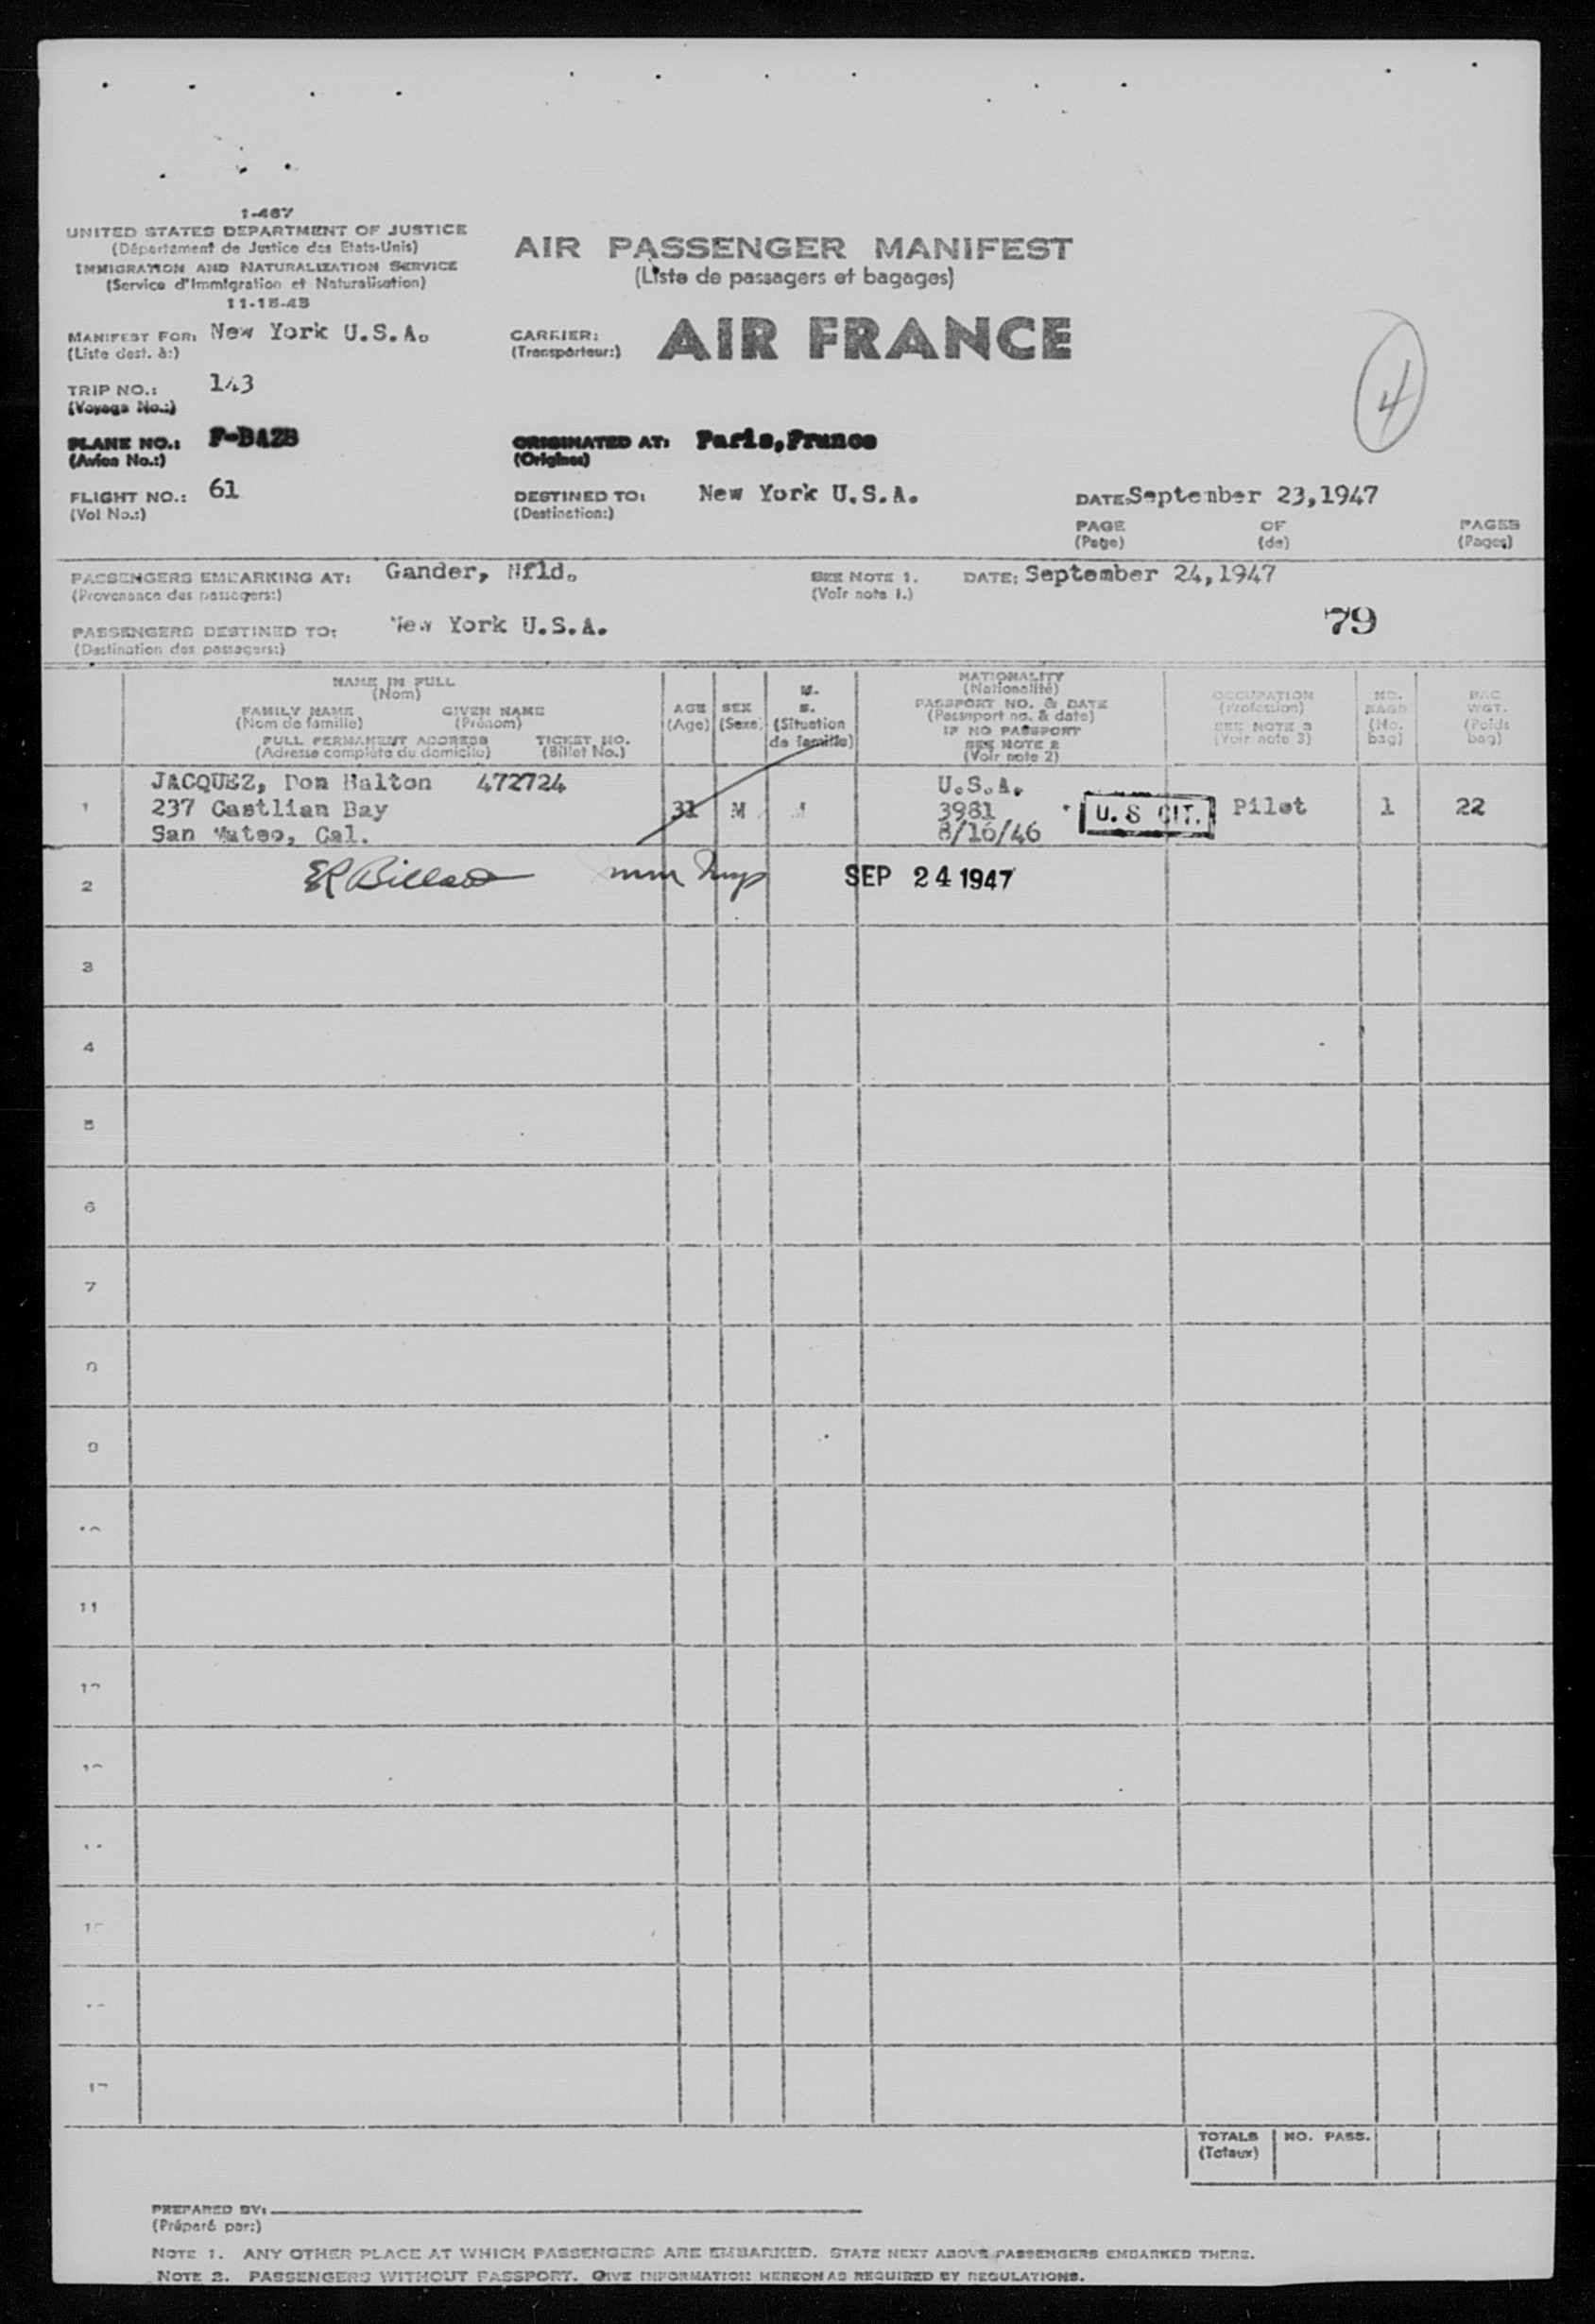 1-467
UNITED STATES DEPARTMENT OF JUSTICE
(Département de Justice des Etats-Unis)
IMMIGRATION AND NATURALIZATION SERVICE
(Service d'Immigration et Naturalisation)
11-15-43
AIR PASSENGER MANIFEST
(Liste de passagers et bagages)
MANIFEST FOR: New York U.S.A.
(Liste dest. à:)
CARRIER: AIR FRANCE
(Transporteur:)
TRIP NO.: 143
(Voyage No.:)
4
PLANE NO.: F-BAZB
(Avion No.:)
ORIGINATED AT: Paris, France
(Origine:)
FLIGHT NO.: 61
(Vol No.:)
DESTINED TO: New York U.S.A.
(Destination:)
DATE: September 23,1947
PAGE OF PAGES
(Page) (de) (Pages)
PASSENGERS EMBARKING AT: Gander, Nfld.
(Provenance des passagers:)
SEE NOTE 1. DATE: September 24,1947
(Voir note 1.)
PASSENGERS DESTINED TO: New York U.S.A.
(Destination des passagers:)
79
NAME IN FULL
(Nom)
FAMILY NAME GIVEN NAME
(Nom de famille) (Prénom)
FULL PERMANENT ADDRESS TICKET NO.
(Adresse complète du domicile) (Billet No.)
AGE
(Age)
SEX
(Sexe)
M.
S.
(Situation
de famille)
NATIONALITY
(Nationalité)
PASSPORT NO. & DATE
(Passport no. & date)
IF NO PASSPORT
SEE NOTE 2
(Voir note 2)
OCCUPATION
(Profession)
SEE NOTE 3
(Voir note 3)
NO.
BAGS
(No.
bag)
BAG
WGT.
(Poids
bag)
1 JACQUEZ, Don Halton 472724
237 Castlian Bay
San Mateo, Cal.
31 M
U.S.A.
3981
8/16/46
U.S CIT.
Pilot 1 22
2 SEP 24 1947
3
4
5
6
7
8
9
10
11
12
TOTALS NO. PASS.
(Totaux)
PREPARED BY:
(Préparé par:)
NOTE 1. ANY OTHER PLACE AT WHICH PASSENGERS ARE EMBARKED. STATE NEXT ABOVE PASSENGERS EMBARKED THERE.
NOTE 2. PASSENGERS WITHOUT PASSPORT. GIVE INFORMATION HEREON AS REQUIRED BY REGULATIONS.